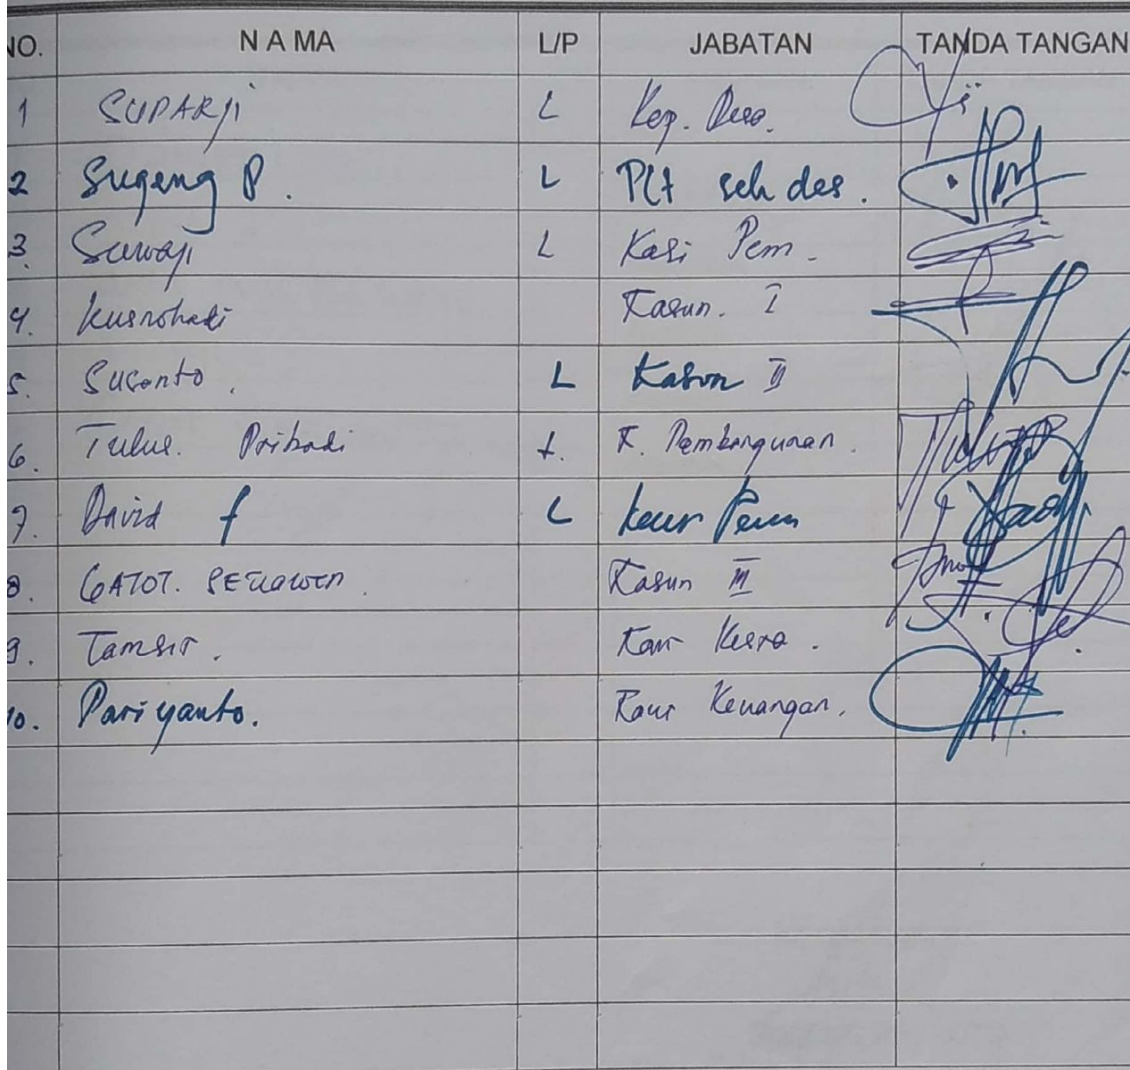 NO. NAMA L/P JABATAN TANDA TANGAN
1 SUPARji L Kep. Desa.
2 Sugeng P. L Plt sek des.
3. Suwaji L Kasi Pem.
4. Kusnohadi Kasun. I
5. Susanto. L Kasun II
6. Tulus. Pribadi L. K. Pembangunan.
7. David f L Kaur Perun
8. GATOT. SETIAWAN. Kasun III
9. Tamsir. Kaur Kesra.
10. Pariyanto. Kaur Keuangan.